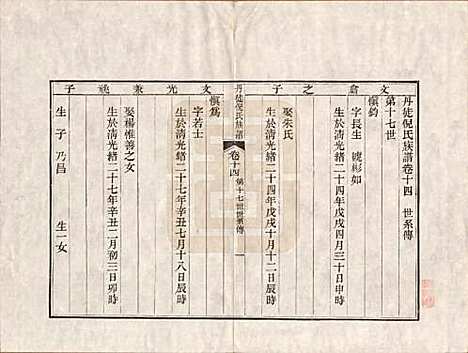 丹徒倪氏族譜卷十四　世系傳
第十七世
文倉之子
愼鈞
字長生　號彬如
生於清光緒二十四年戊戌四月三十日申時
娶朱氏
生於清光緒二十四年戊戌十月十二日辰時
丹徒倪氏族譜　卷十四　第十七世世系傳　一
文光兼祧子
愼爲
字若士
生於清光緒二十七年辛丑七月十八日辰時
娶楊惟善之女
生於清光緒二十七年辛丑二月初三日卯時
生子　乃昌　生一女